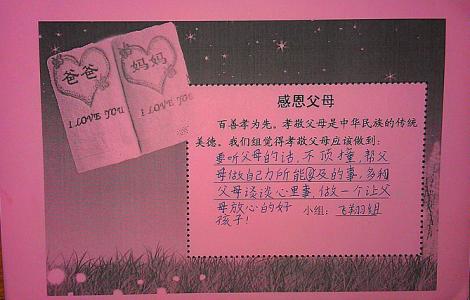 爸爸
妈妈
I LOVE YOU
I LOVE YOU
感恩父母
百善孝为先。孝敬父母是中华民族的传统
美德。我们组觉得孝敬父母应该做到：
要听父母的话，不顶撞，帮父
母做自己力所能及的事，多和
父母谈谈心里事，做一个让父
母放心的好
孩子！
小组：飞翔组